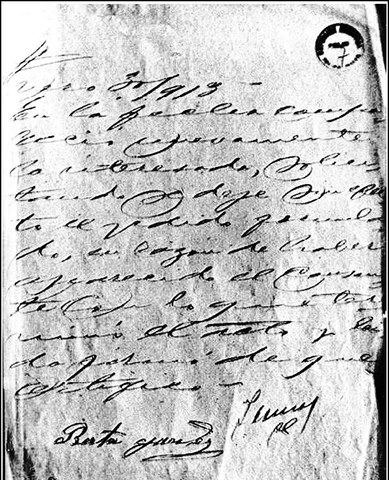 Enero 30/1913 –
En la fecha compa
reció nuevamente
la interesada, solici
tando se deje sin efec
to el pedido formula
do, en razon de haber
aparecido el causan
te Con lo que se ter
minó el acto y
firmó de que
certifico –
Berta